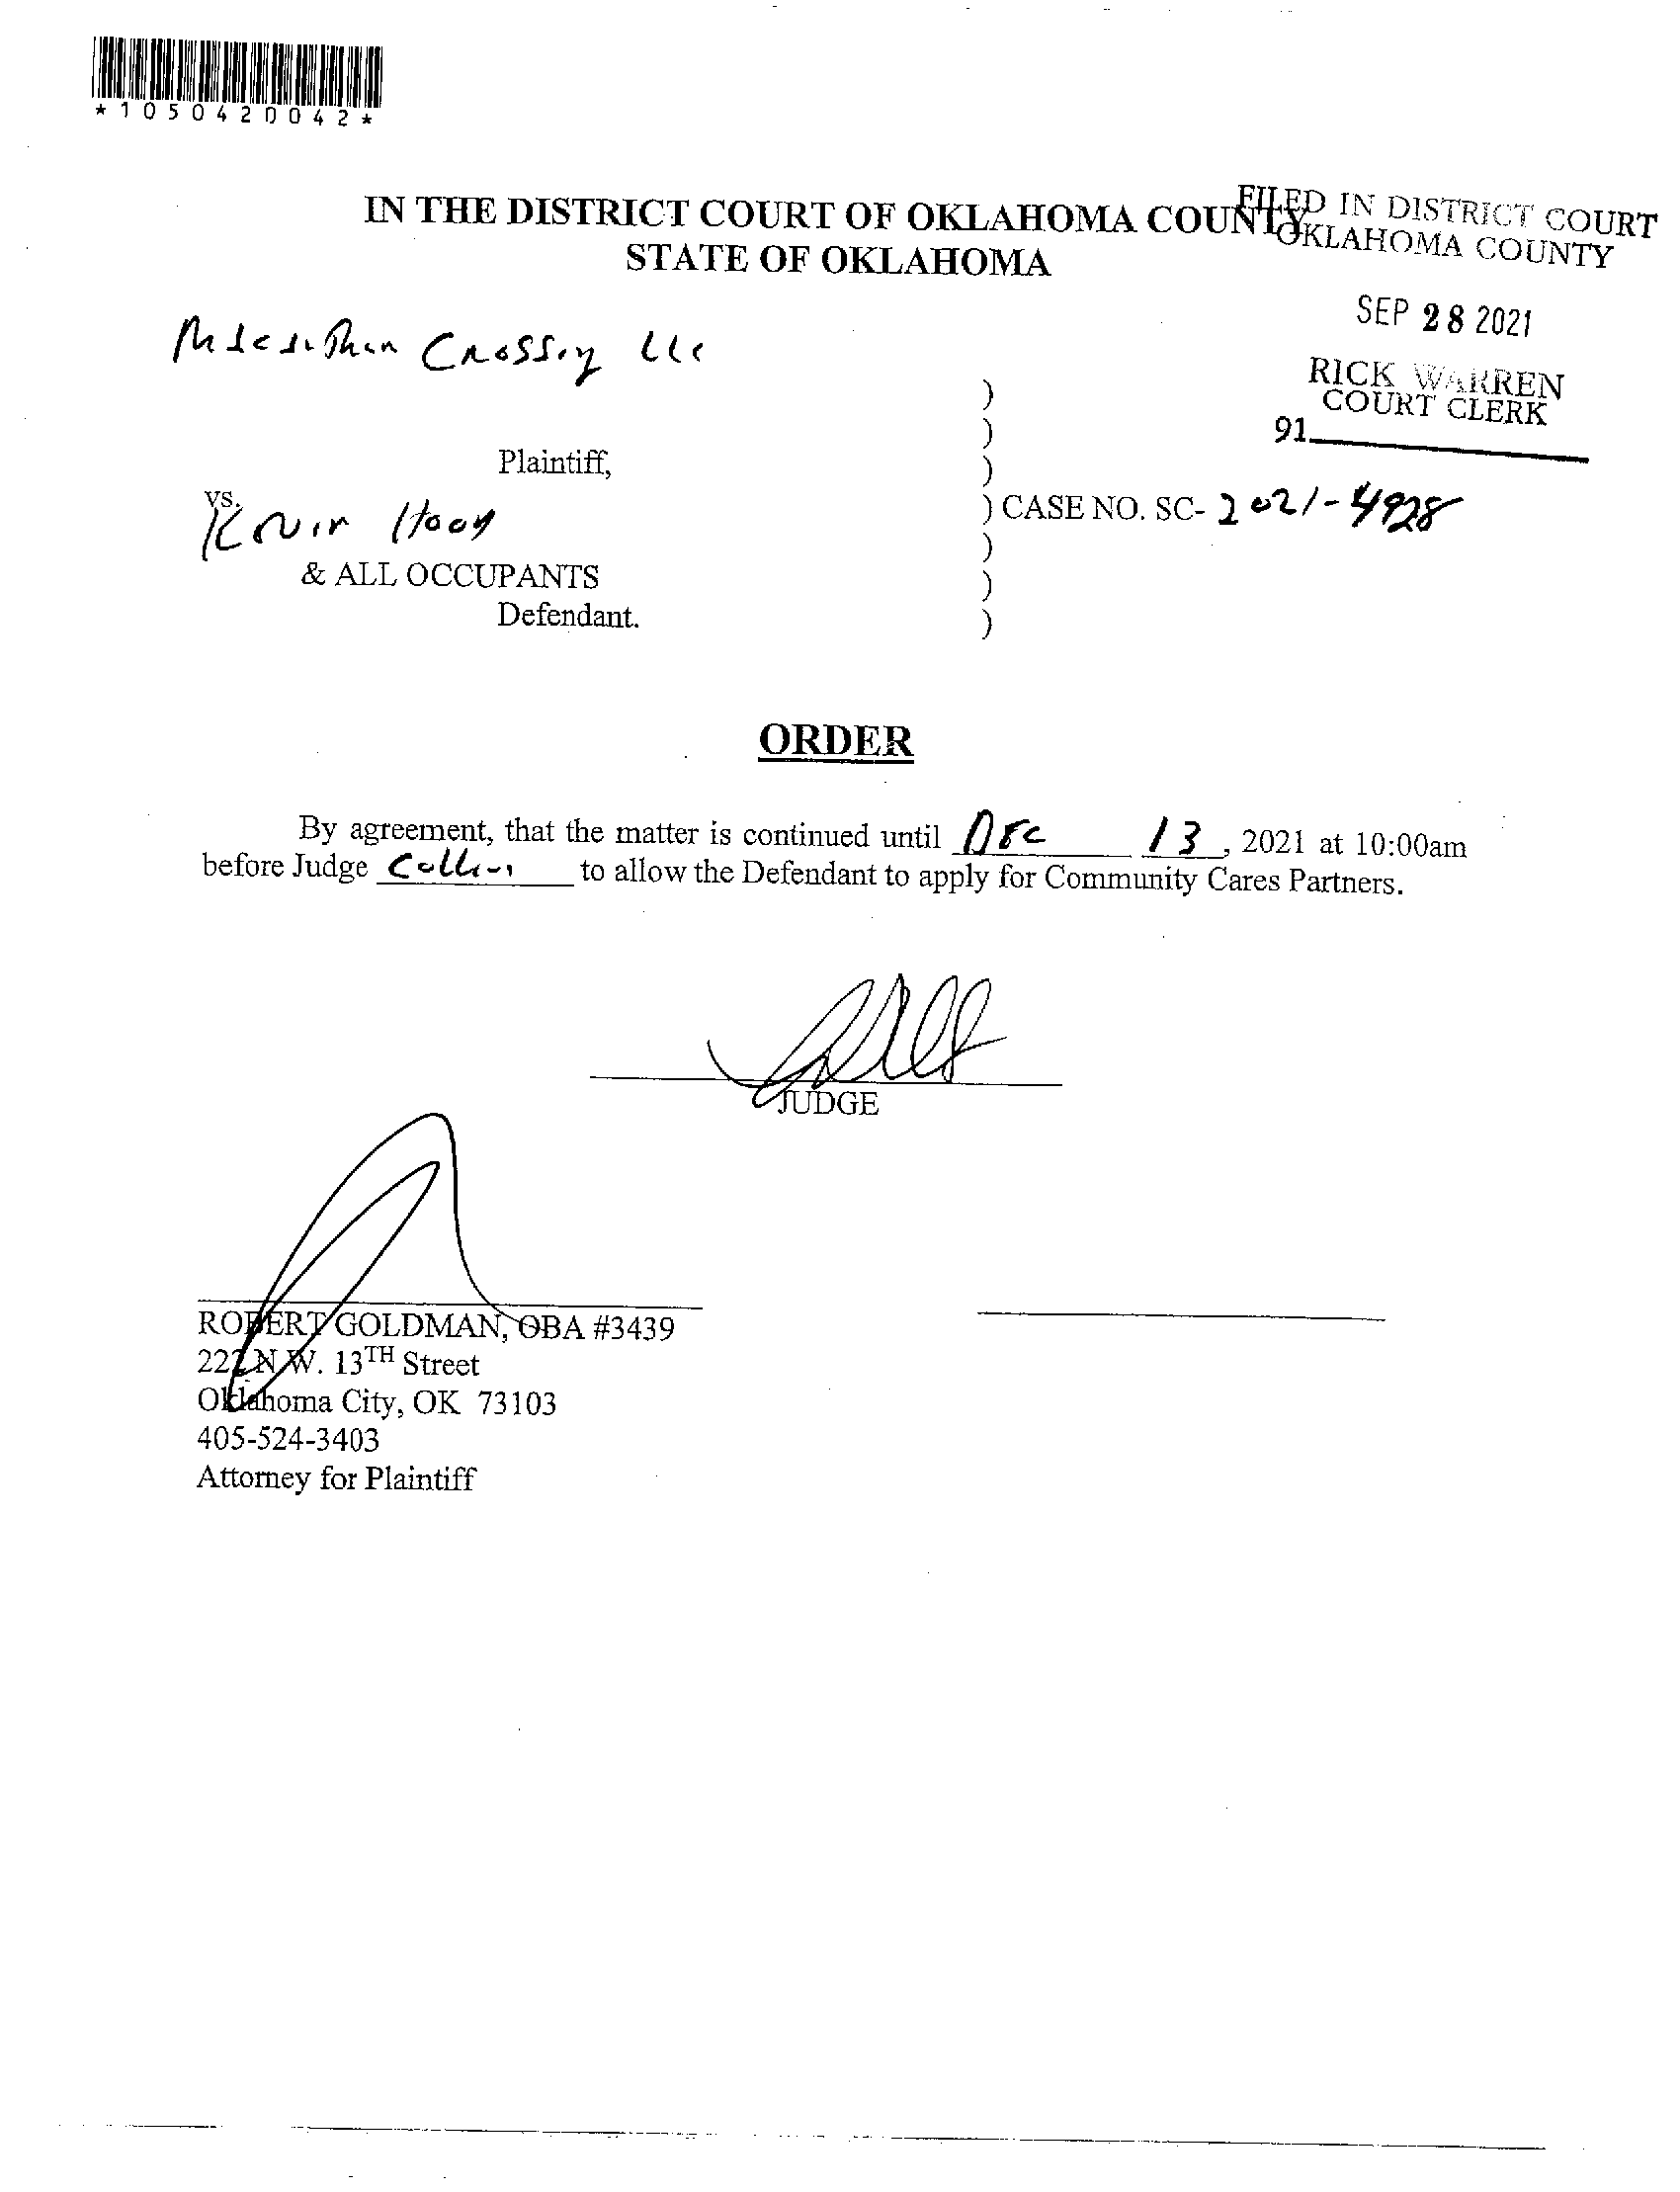 *1050420042*
IN THE DISTRICT COURT OF OKLAHOMA COUNTY
STATE OF OKLAHOMA
FILED IN DISTRICT COURT
OKLAHOMA COUNTY
SEP 28 2021
RICK WARREN
COURT CLERK
91
Crossing LLC
)
)
Plaintiff,
)
vs.
) CASE NO. SC- 2021-4928
Kevin
)
& ALL OCCUPANTS
)
Defendant.
)
ORDER
By agreement, that the matter is continued until Dec 13, 2021 at 10:00am
before Judge Collins to allow the Defendant to apply for Community Cares Partners.
JUDGE
ROBERT GOLDMAN, OBA #3439
222 N.W. 13TH Street
Oklahoma City, OK 73103
405-524-3403
Attorney for Plaintiff